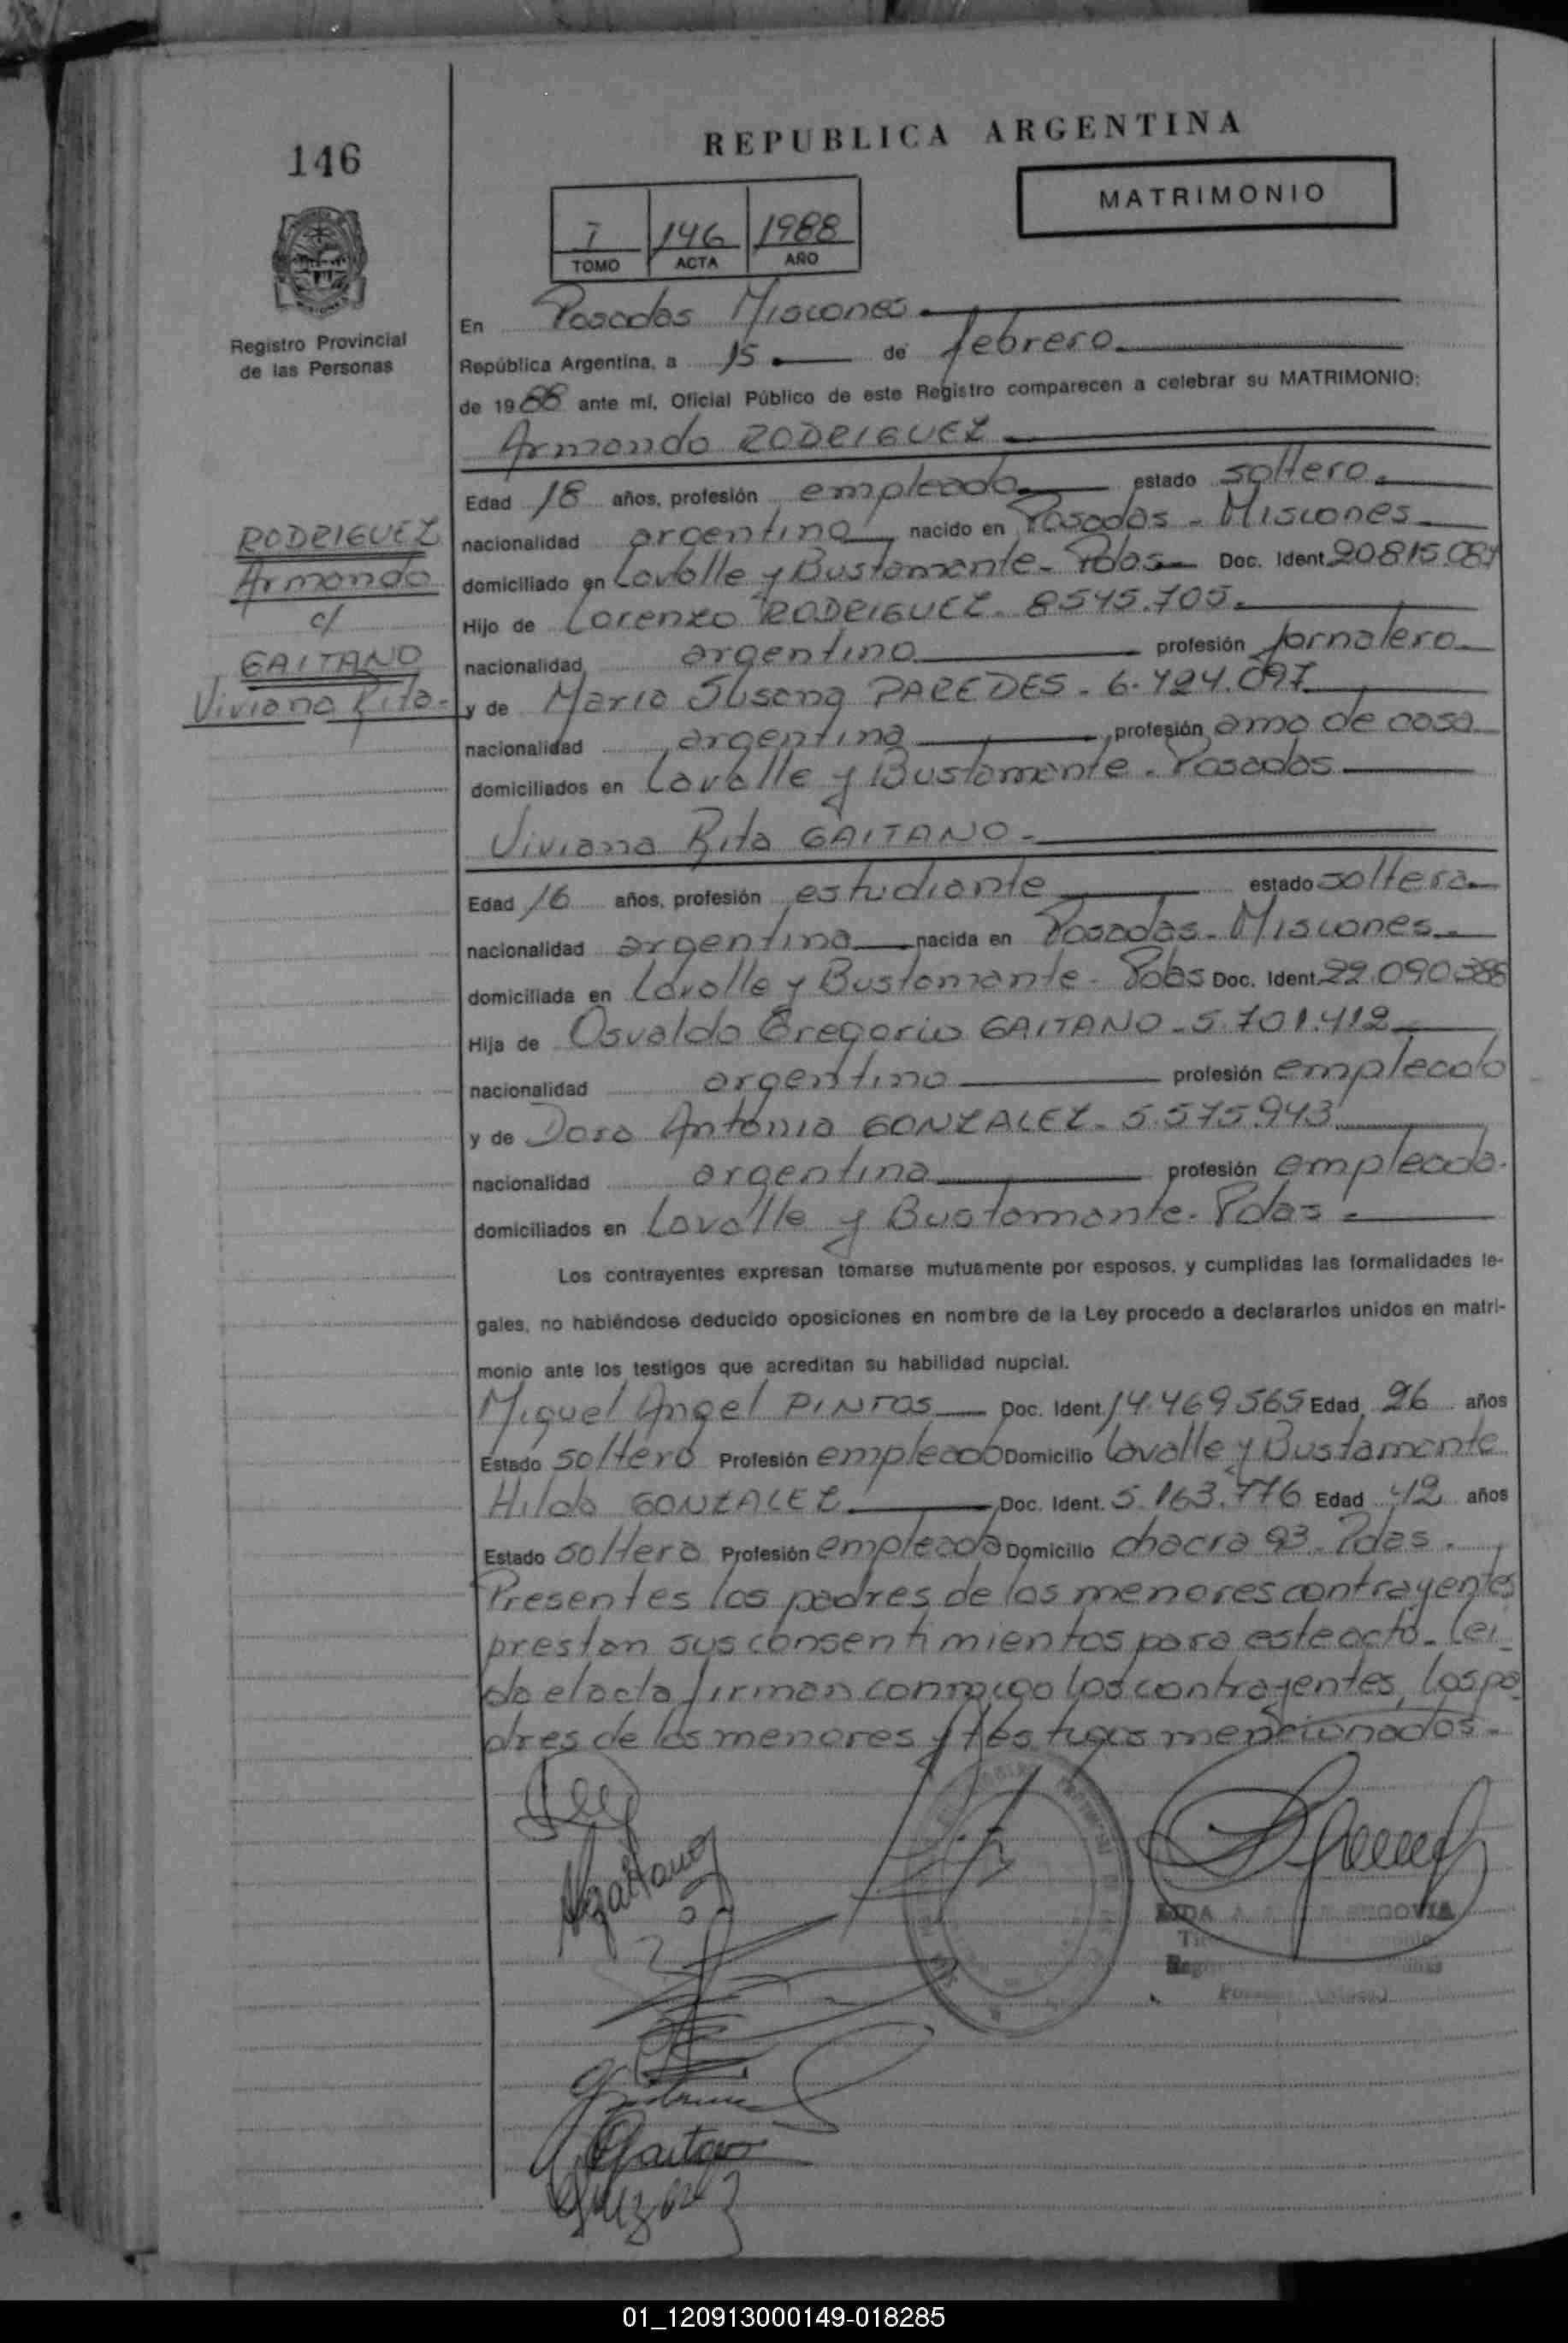 REPUBLICA ARGENTINA
146
MATRIMONIO
I 146 1988
TOMO ACTA AÑO
Registro Provincial
de las Personas
En Posadas Misiones
República Argentina, a 15 de febrero
de 1988 ante mí, Oficial Público de este Registro comparecen a celebrar su MATRIMONIO:
Armando RODRIGUEZ
Edad 18 años, profesión empleado estado soltero
nacionalidad argentina nacido en Posadas - Misiones
domiciliado en Lavalle y Bustamante - Pdas Doc. Ident. 20.815.087
Hijo de Lorenzo RODRIGUEZ - 8545.705.
nacionalidad argentino profesión Jornalero
y de Maria Susana PAREDES - 6.424.097
nacionalidad argentina profesión ama de casa
domiciliados en Lavalle y Bustamante - Posadas
RODRIGUEZ
Armando
c/
GAITANO
Viviana Rita -
Viviana Rita GAITANO -
Edad 16 años, profesión estudiante estado soltera
nacionalidad argentina nacida en Posadas - Misiones
domiciliada en Lavalle y Bustamante - Pdas Doc. Ident. 22.090.385
Hija de Osvaldo Gregorio GAITANO - 5.701.412
nacionalidad argentino profesión empleado
y de Dora Antonia GONZALEZ - 5.575.943
nacionalidad argentina profesión empleada.
domiciliados en Lavalle y Bustamante - Pdas -
Los contrayentes expresan tomarse mutuamente por esposos, y cumplidas las formalidades le-
gales, no habiéndose deducido oposiciones en nombre de la Ley procedo a declararlos unidos en matri-
monio ante los testigos que acreditan su habilidad nupcial.
Miguel Angel PINTOS Doc. Ident. 14.469.565 Edad 26 años
Estado soltero Profesión empleado Domicilio Lavalle y Bustamante
Hilda GONZALEZ Doc. Ident. 5.163.776 Edad 42 años
Estado soltera Profesión empleada Domicilio chacra 93 - Pdas.
Presentes los padres de los menores contrayentes
prestan sus consentimientos para este acto - Lei-
da el acta firman conmigo los contrayentes, los pa-
dres de los menores y testigos mencionados -
Gaitano
SEGOVIA
01_120913000149-018285